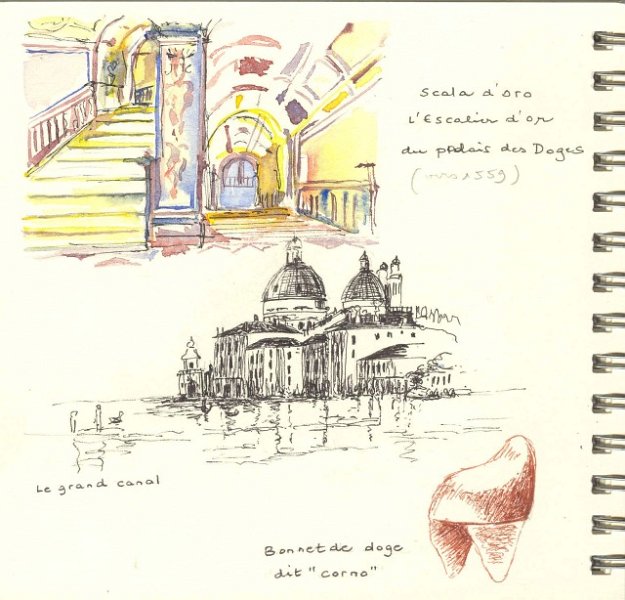 Scala d'oro
L'Escalier d'or
du palais des Doges
(vers 1559)
Le grand canal
Bonnet de doge
dit "corno"